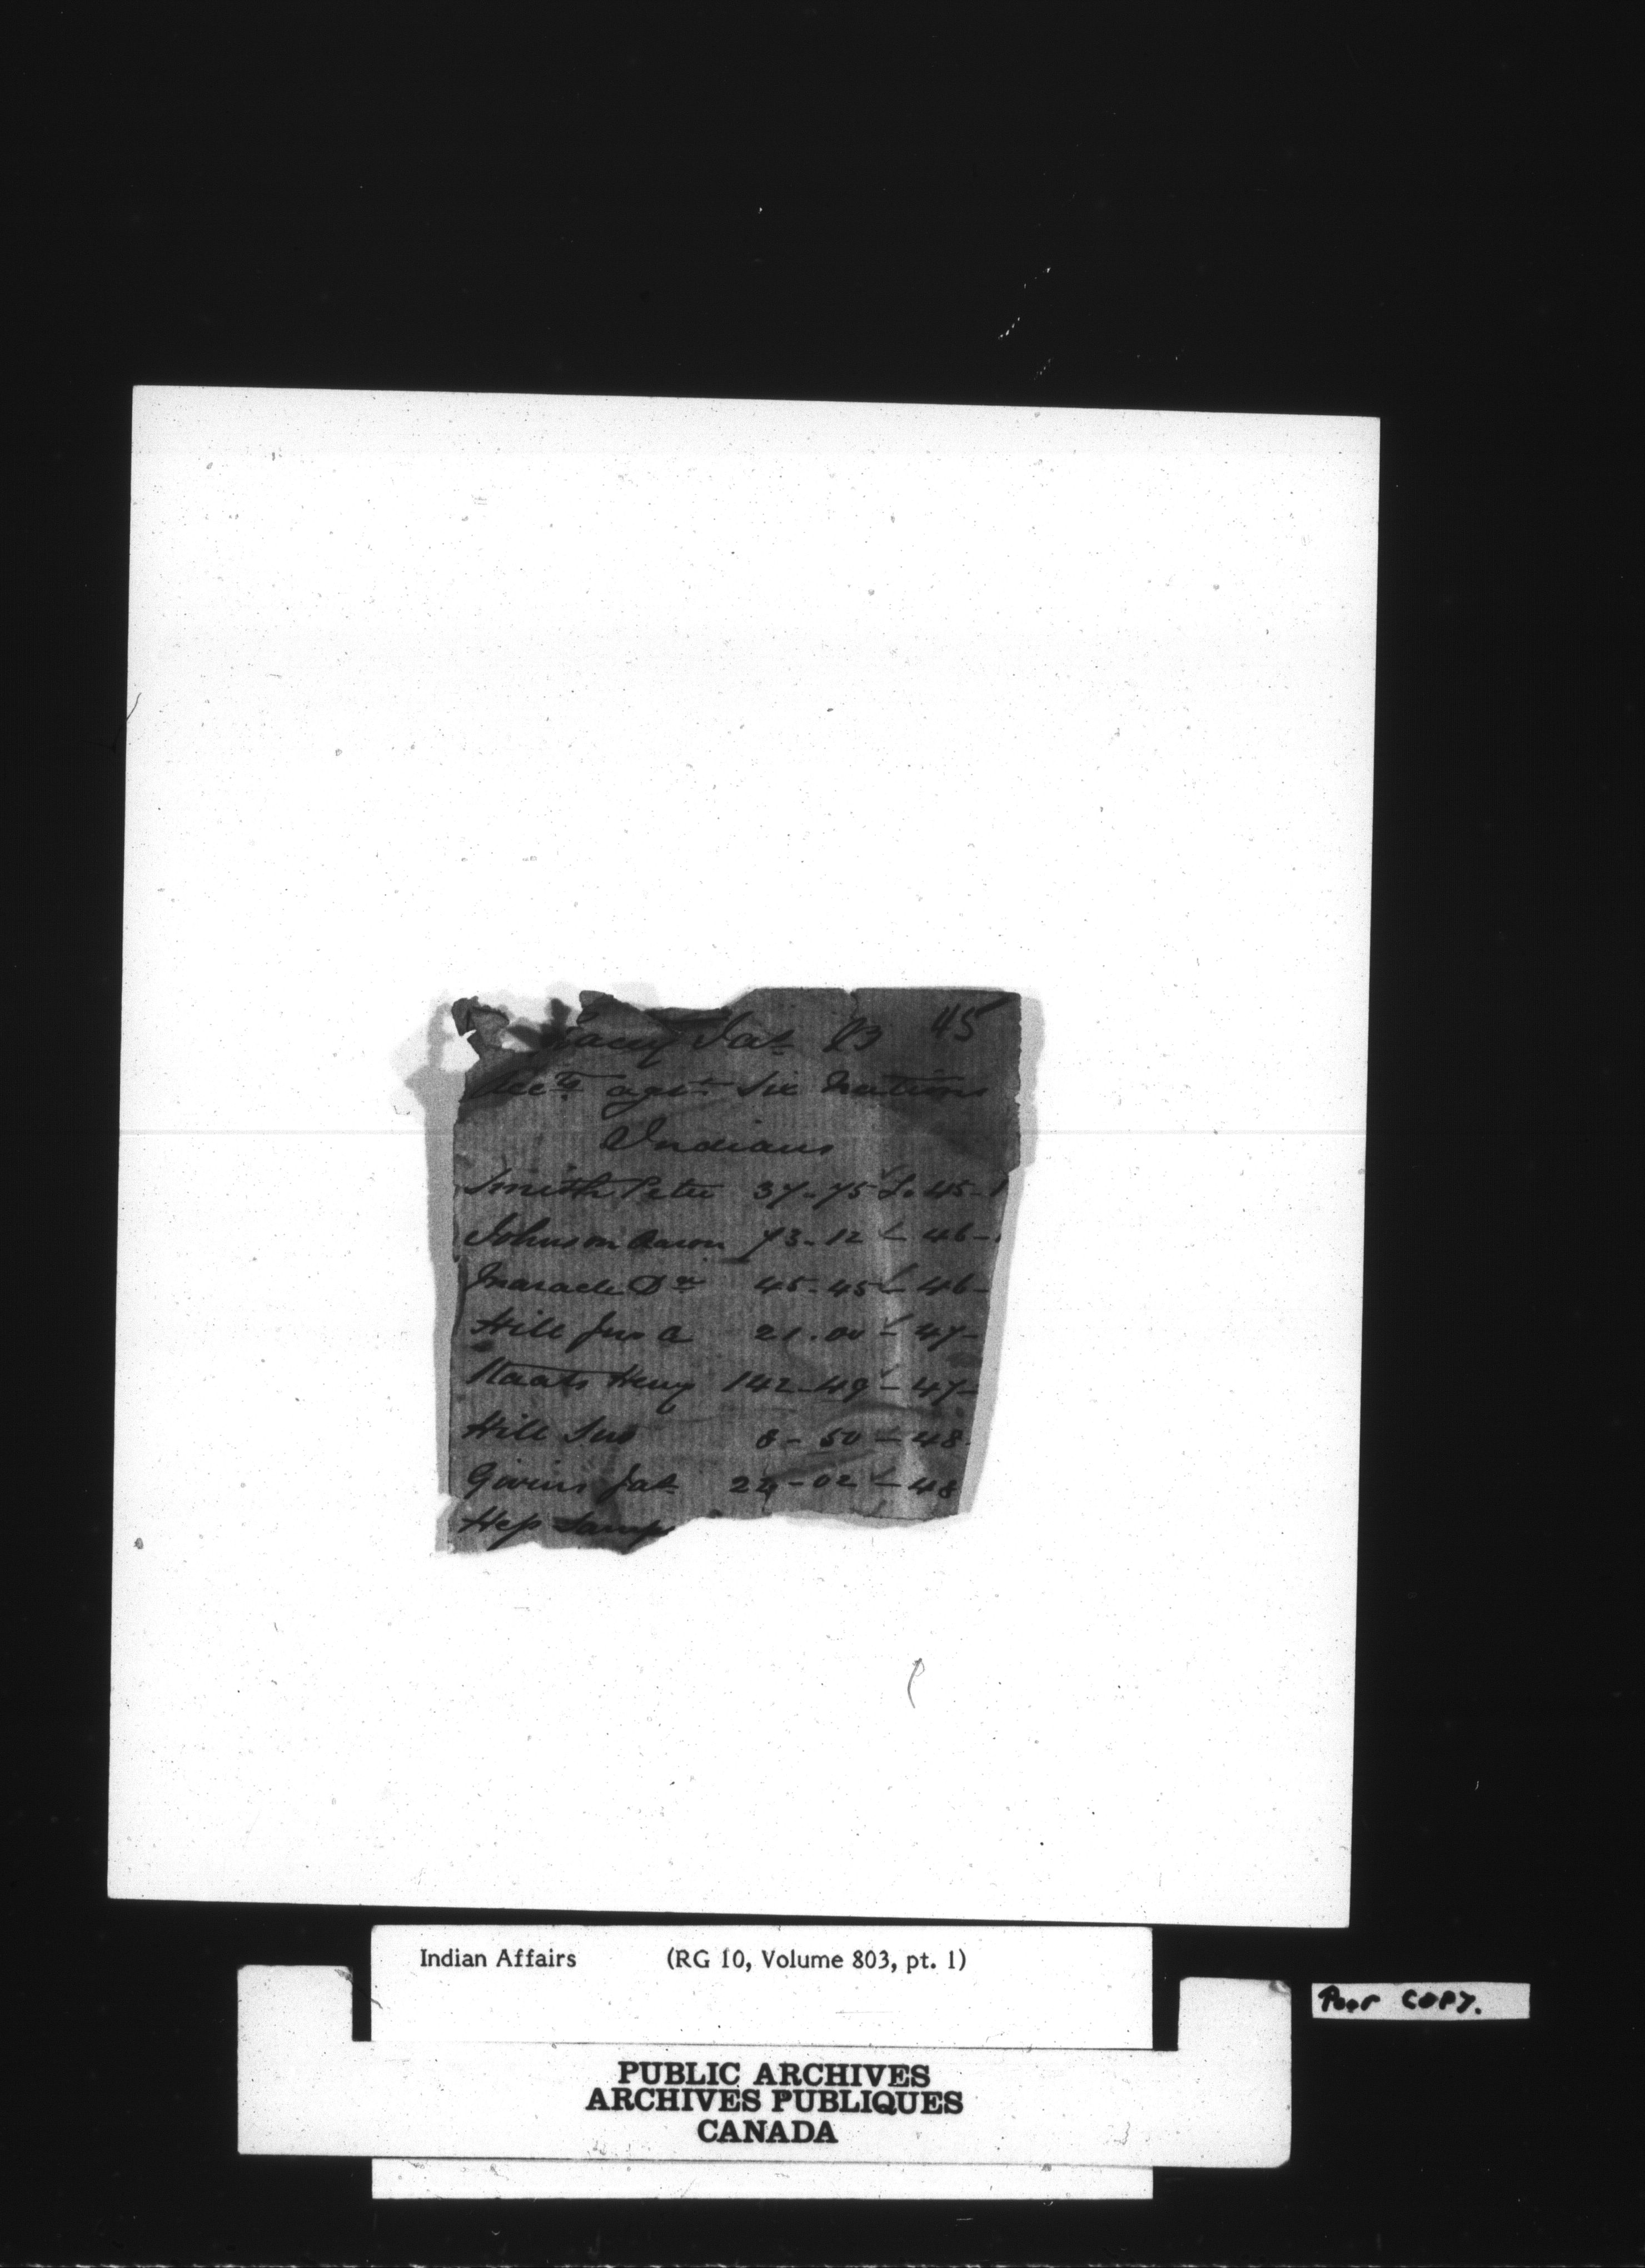 Jas. 23 45
Acc.ts ags.t Six Nations
Indians
Smith Peter 37-75 L. 45-1
Johnson Aaron 73-12 L 46-
Maracle D 45-45 L 46-
Hill Jno A 21.00 L 47-
Staats Henry 142-49 - 47-
Hill Jno 8-50 - 48.
Givens Jas. 24-02 L - 48
Hep
Indian Affairs (RG 10, Volume 803, pt. 1)
Poor COPY.
PUBLIC ARCHIVES
ARCHIVES PUBLIQUES
CANADA